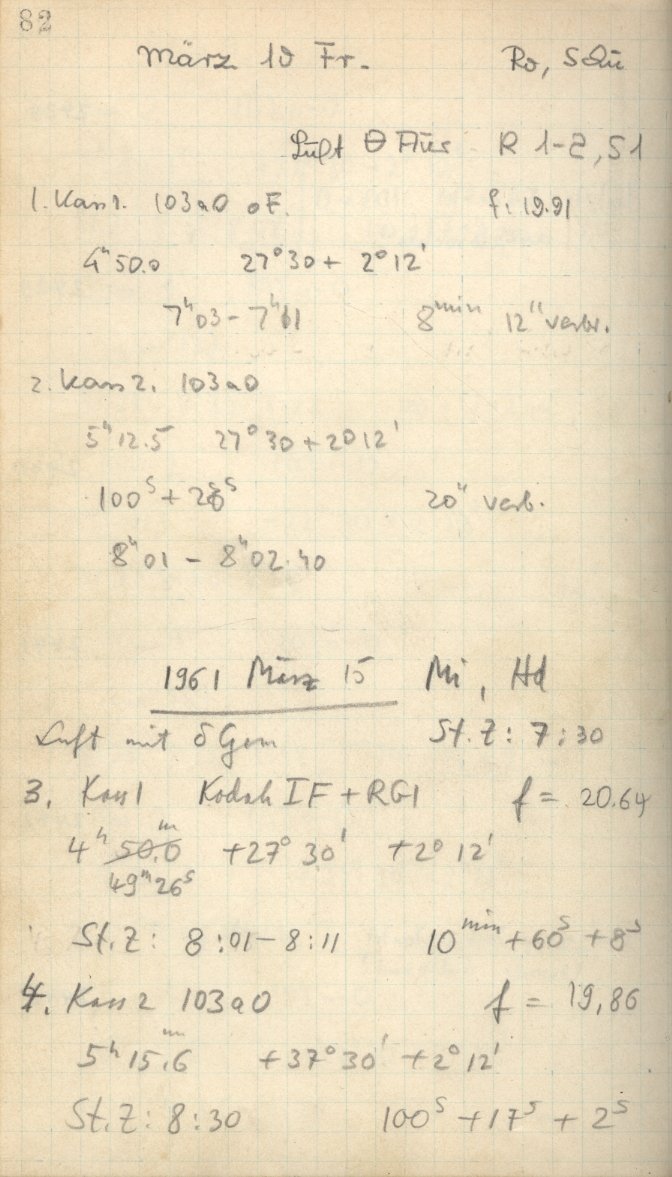 82
März 10 Fr. Ro, Schü
Luft θ R 1-2, S1
1. Kass 1. 103aO oF. f: 19.91
4ʰ50.0 27°30+ 2°12'
7ʰ03 - 7ʰ11 8ᵐⁱⁿ 12ˢ verbr.
2. Kass 2. 103aO
5ʰ12.5 27°30+2°12'
100ˢ + 28ˢ 20ˢ verb.
8ʰ01 - 8ʰ02.40
1961 März 15 Mi, Hd
Luft mit δ Gem St.Z: 7:30
3. Kass 1 Kodak IF + RG1 f = 20.64
4ʰ 50.0ᵐ +27° 30' +2° 12'
49ᵐ26ˢ
St.Z: 8:01-8:11 10ᵐⁱⁿ +60ˢ +8ˢ
4. Kass 2 103aO f = 19,86
5ʰ 15.6ᵐ +37° 30' +2° 12'
St.Z: 8:30 100ˢ +17ˢ + 2ˢ